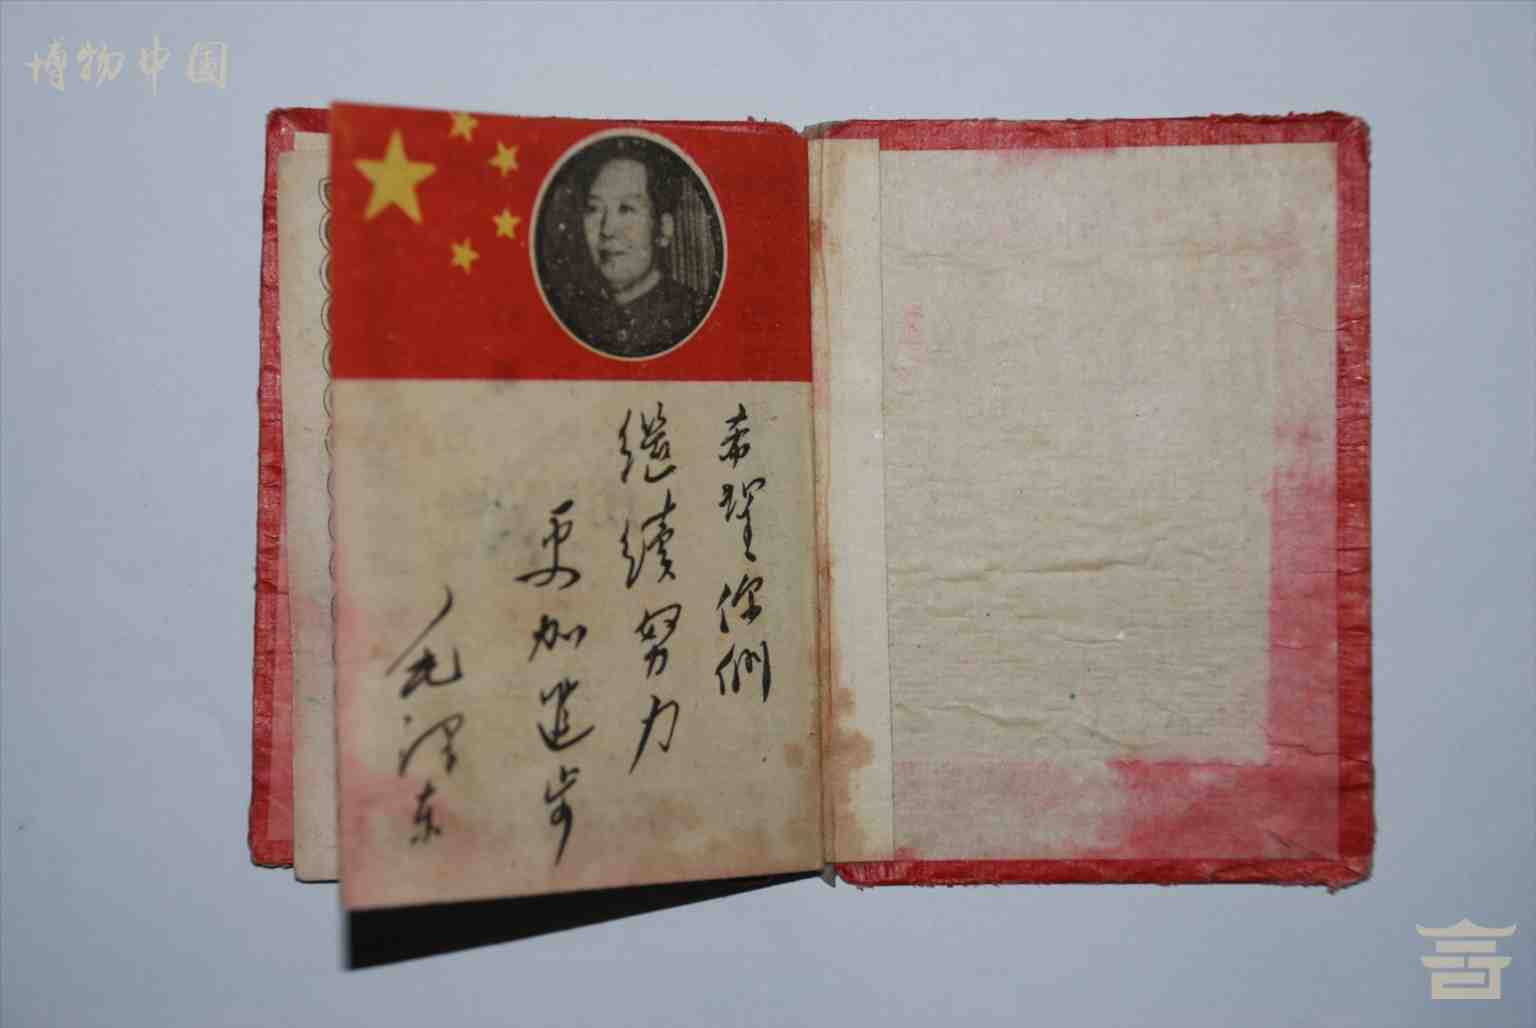 博物中国
希望你們
繼續努力
更加進步
毛澤东